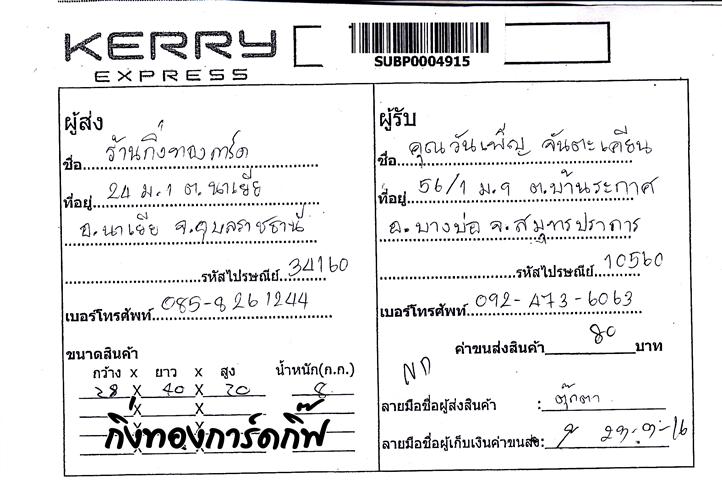 KERRY
EXPRESS
SUBP0004915
ผู้ส่ง
ชื่อ ร้านกิ่งทองการ์ด
ที่อยู่ 24 ม.1 ต.นาเยีย
อ.นาเยีย จ.อุบลราชธานี
รหัสไปรษณีย์ 34160
เบอร์โทรศัพท์ 085-8261244
ขนาดสินค้า
กว้าง x ยาว x สูง น้ำหนัก(ก.ก.)
28 X 40 X 20 8
X X
กิ่งทองการ์ดกิ๊ฟ
ผู้รับ
ชื่อ คุณวันเพ็ญ จันตะเคียน
ที่อยู่ 56/1 ม.9 ต.บ้านระกาศ
อ.บางบ่อ จ.สมุทรปราการ
รหัสไปรษณีย์ 10560
เบอร์โทรศัพท์ 092-473-6063
ค่าขนส่งสินค้า 80 บาท
ND
ลายมือชื่อผู้ส่งสินค้า : ตุ๊กตา
ลายมือชื่อผู้เก็บเงินค่าขนส่ง: